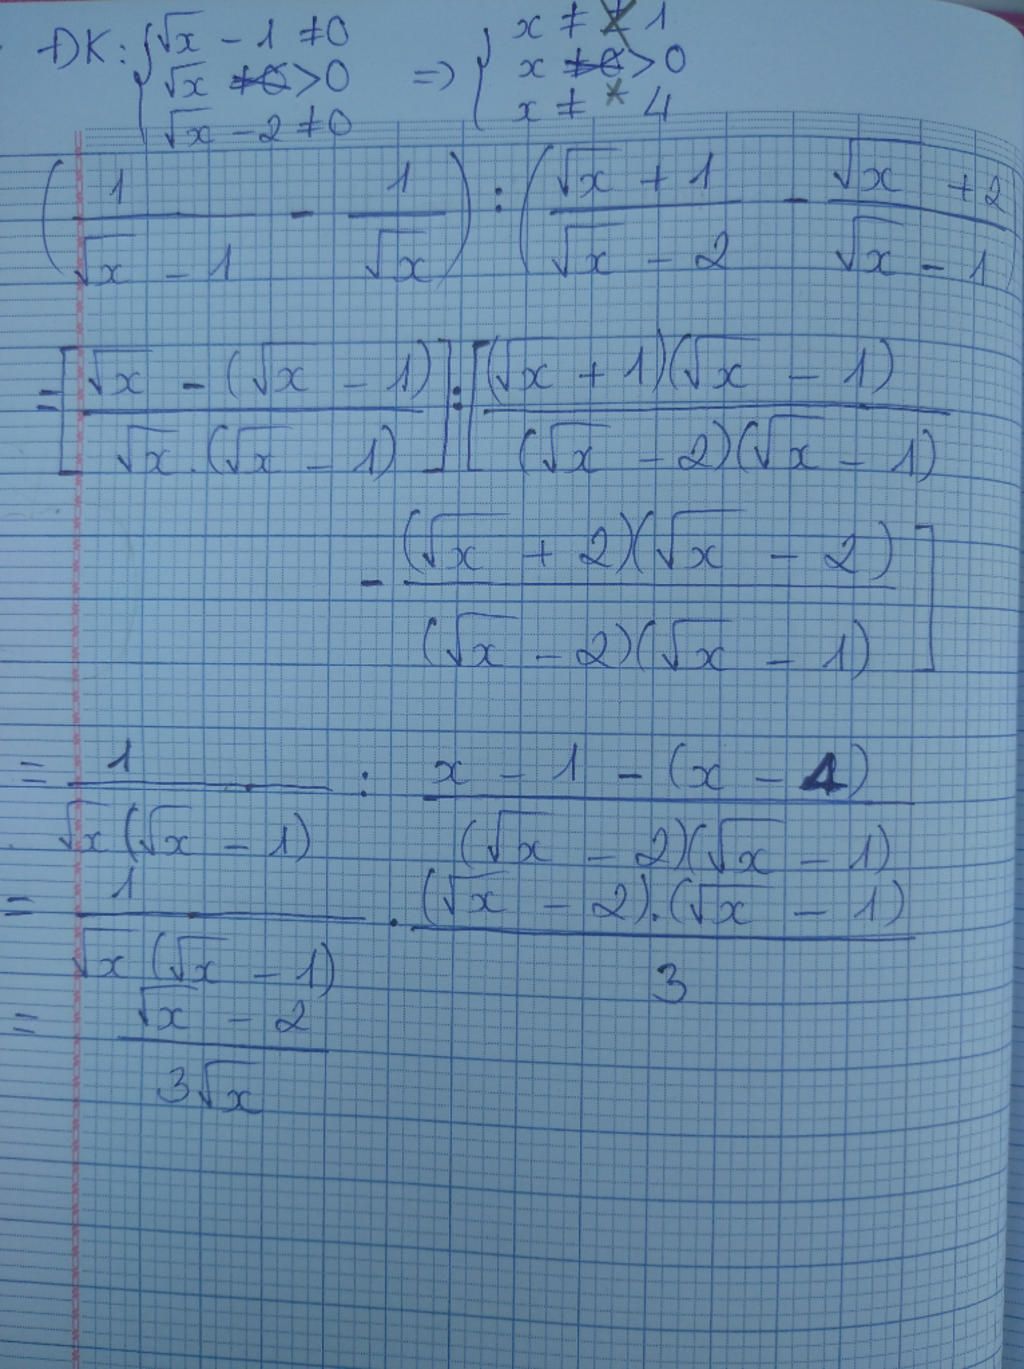 ĐK: { √x - 1 ≠ 0 => { x ≠ 1
√x > 0 x > 0
√x - 2 ≠ 0 x ≠ 4
(1/(√x - 1) - 1/√x) : ((√x + 1)/(√x - 2) - (√x + 2)/(√x - 1))
= [(√x - (√x - 1))/(√x.(√x - 1))] : [((√x + 1)(√x - 1))/((√x - 2)(√x - 1))
- ((√x + 2)(√x - 2))/((√x - 2)(√x - 1))]
= 1/(√x(√x - 1)) : (x - 1 - (x - 4))/((√x - 2)(√x - 1))
= 1/(√x(√x - 1)) . ((√x - 2).(√x - 1))/3
= (√x - 2)/(3√x)